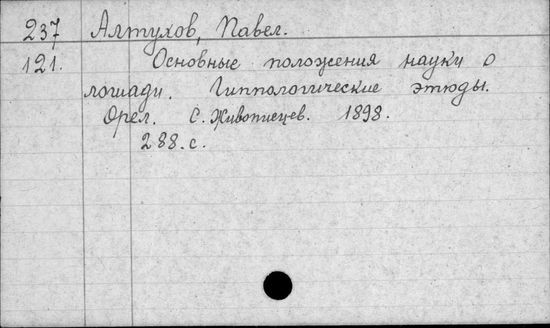 237 Алтухов, Павел.
121. Основные положения науки о
лошади. Гиппологические этюды.
Орел. С. Живописцев. 1898.
288. с.